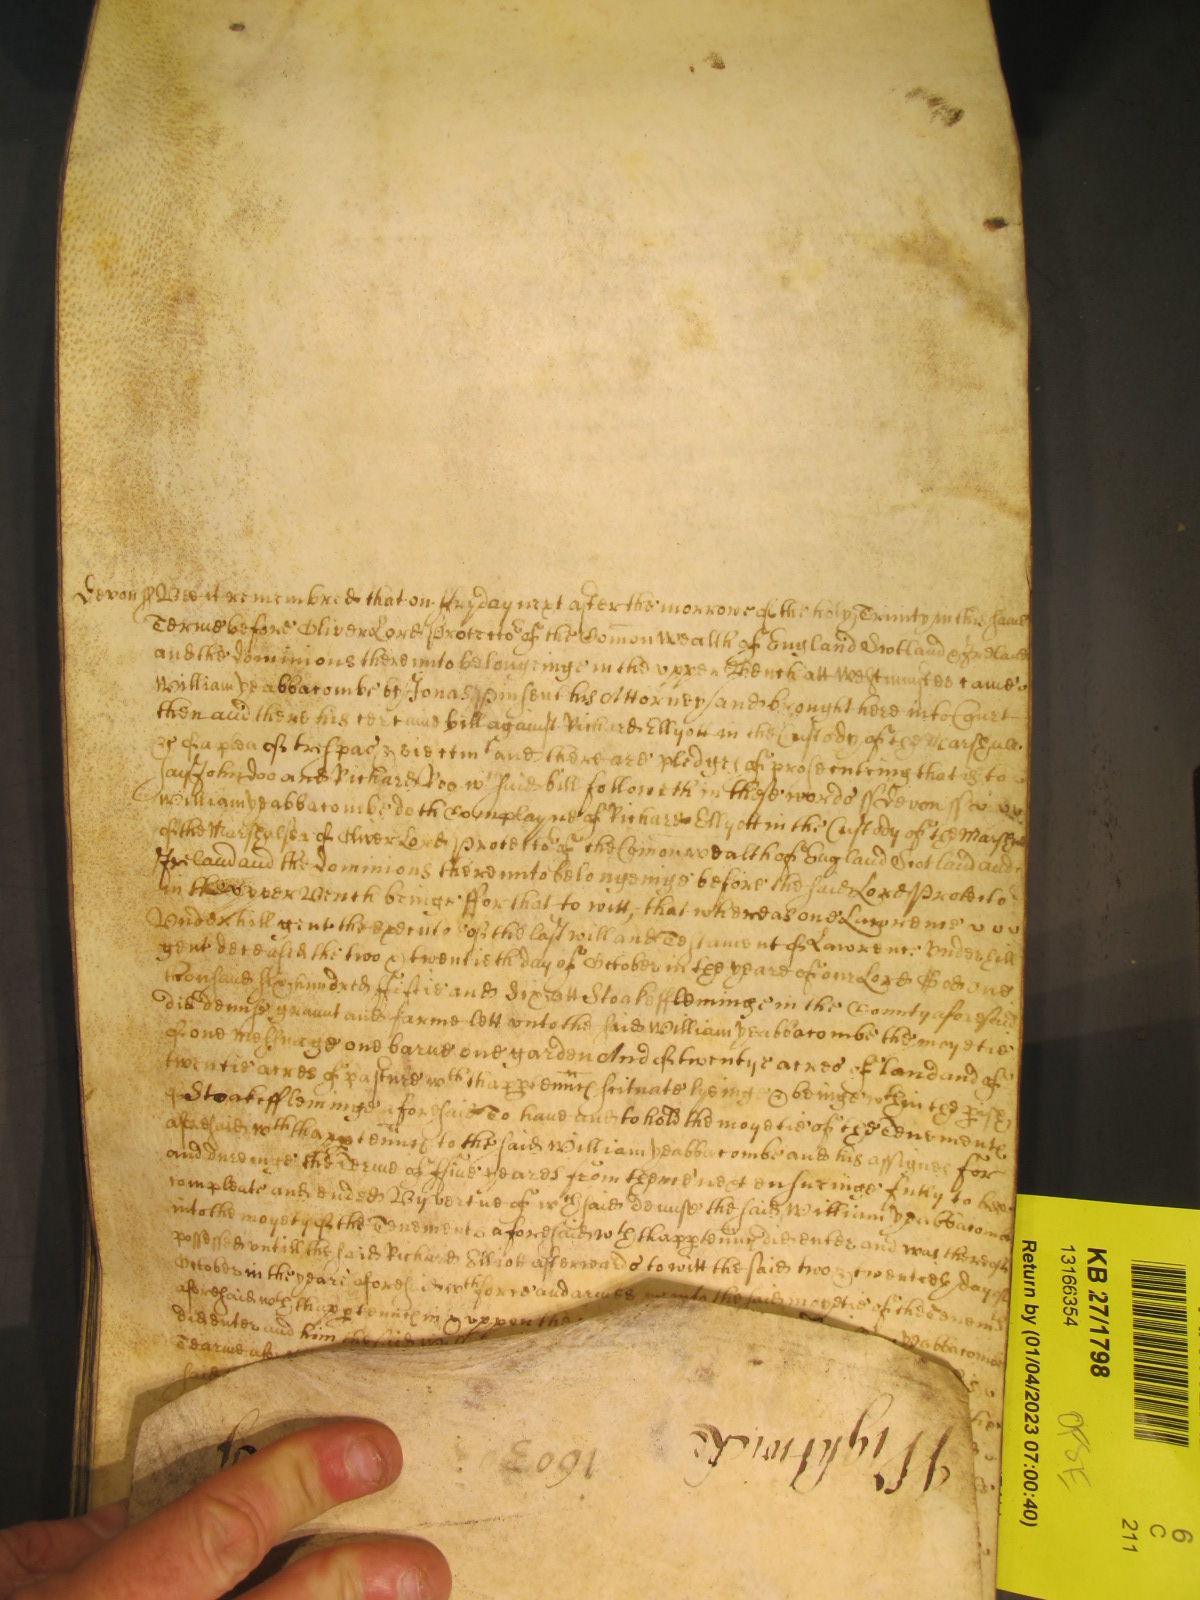 Devon ss Bee it remembred that on ffryday next after the morrowe of the holy Trinity in this same
Terme before Oliver Lord Protector of the Comon Wealth of England Scotland & Ireland
and the dominions thereunto belongeinge in the upper Bench att Westminster came
William Yeabbacombe by Jonas Pinsent his Attorney and brought here into Court
then and there his certaine bill against Richard Ellyott in the Custody of the Marshall
&c of a plea of trespas & eiectmt and there are pledges of prosecuteing that is to
say John Doo and Richard Roo wch said bill followeth in these words ss Devon ss
William Yeabbacombe doth Complayne of Richard Ellyott in the Custody of the Marshall
of the Marshalsea of Oliver Lord Protector of the Comonwealth of England Scotland and
Ireland and the dominions thereunto belongeinge before the said Lord Protector
in the Upper Bench beinge ffor that to witt, that whereas one Lawrence
Underhill gent the executor of the last will and Testament of Lawrence Underhill
gent deceased the two & twentieth day of October in the yeare of our Lord God one
thousand six hundred fiftie and six att Stoakeffleminge in the County aforesaid
did demise graunt and farme lett unto the said William Yeabbacombe the moyetie
of one messuage one barne one garden And of twentye acres of land and of
twentie acres of pasture wth thappurtennces scituate lyeing & being within the parish
of Stoakeffleminge aforesaid To have and to hold the moyetie of the Tenements
aforesaid wth thappurtennces to the said William Yeabbacombe and his assignes for
and dureinge the Terme of ffive yeares from thence next ensueinge fully to bee
compleate and ended By vertue of wch said demise the said William Yeabbacombe
into the moyety of the Tenements aforesaid wth thappurtennces did enter and was thereof
possessed untill the said Richard Elliot afterwards to witt the said two & twentieth day of
October in the yeare aforesaid with force and armes &c into the said moyetie of the Tenemts
aforesaid wth thappurtennces in & uppon the
did enter and him the said Yeabbacombe
Tearme
said
Wightwicke
1603
KB 27/1798
13166354
Return by (01/04/2023 07:00:40)
6
C
211